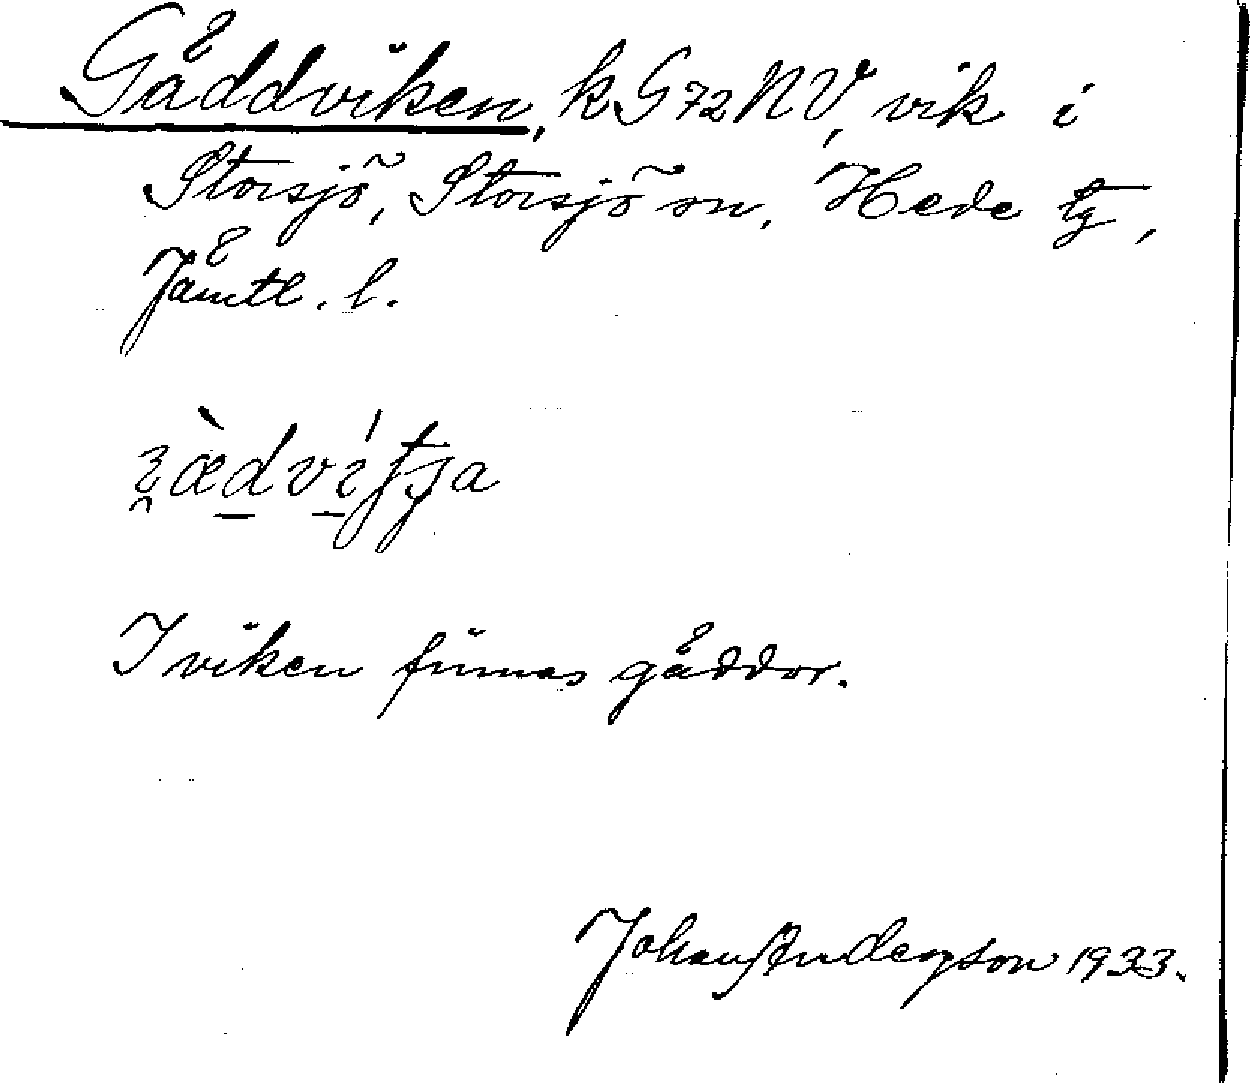 Gäddviken, k G 72 NV, vik i
Storsjö, Storsjö sn, Hede tg,
Jämtl. l.
I viken finnas gäddor.
Johan Anderzson 1933.